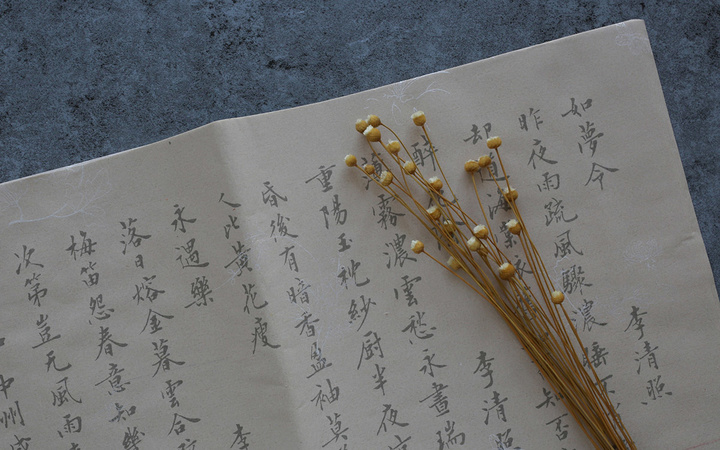 如夢令 李清照
昨夜雨疏風驟濃睡不
却道海棠依知否
醉 李清照
薄霧濃雲愁永晝瑞
重陽玉枕紗厨半夜
昏後有暗香盈袖莫
人比黃花瘦
永遇樂 李
落日熔金暮雲合
梅笛怨春意知幾
次第豈无風雨
中州